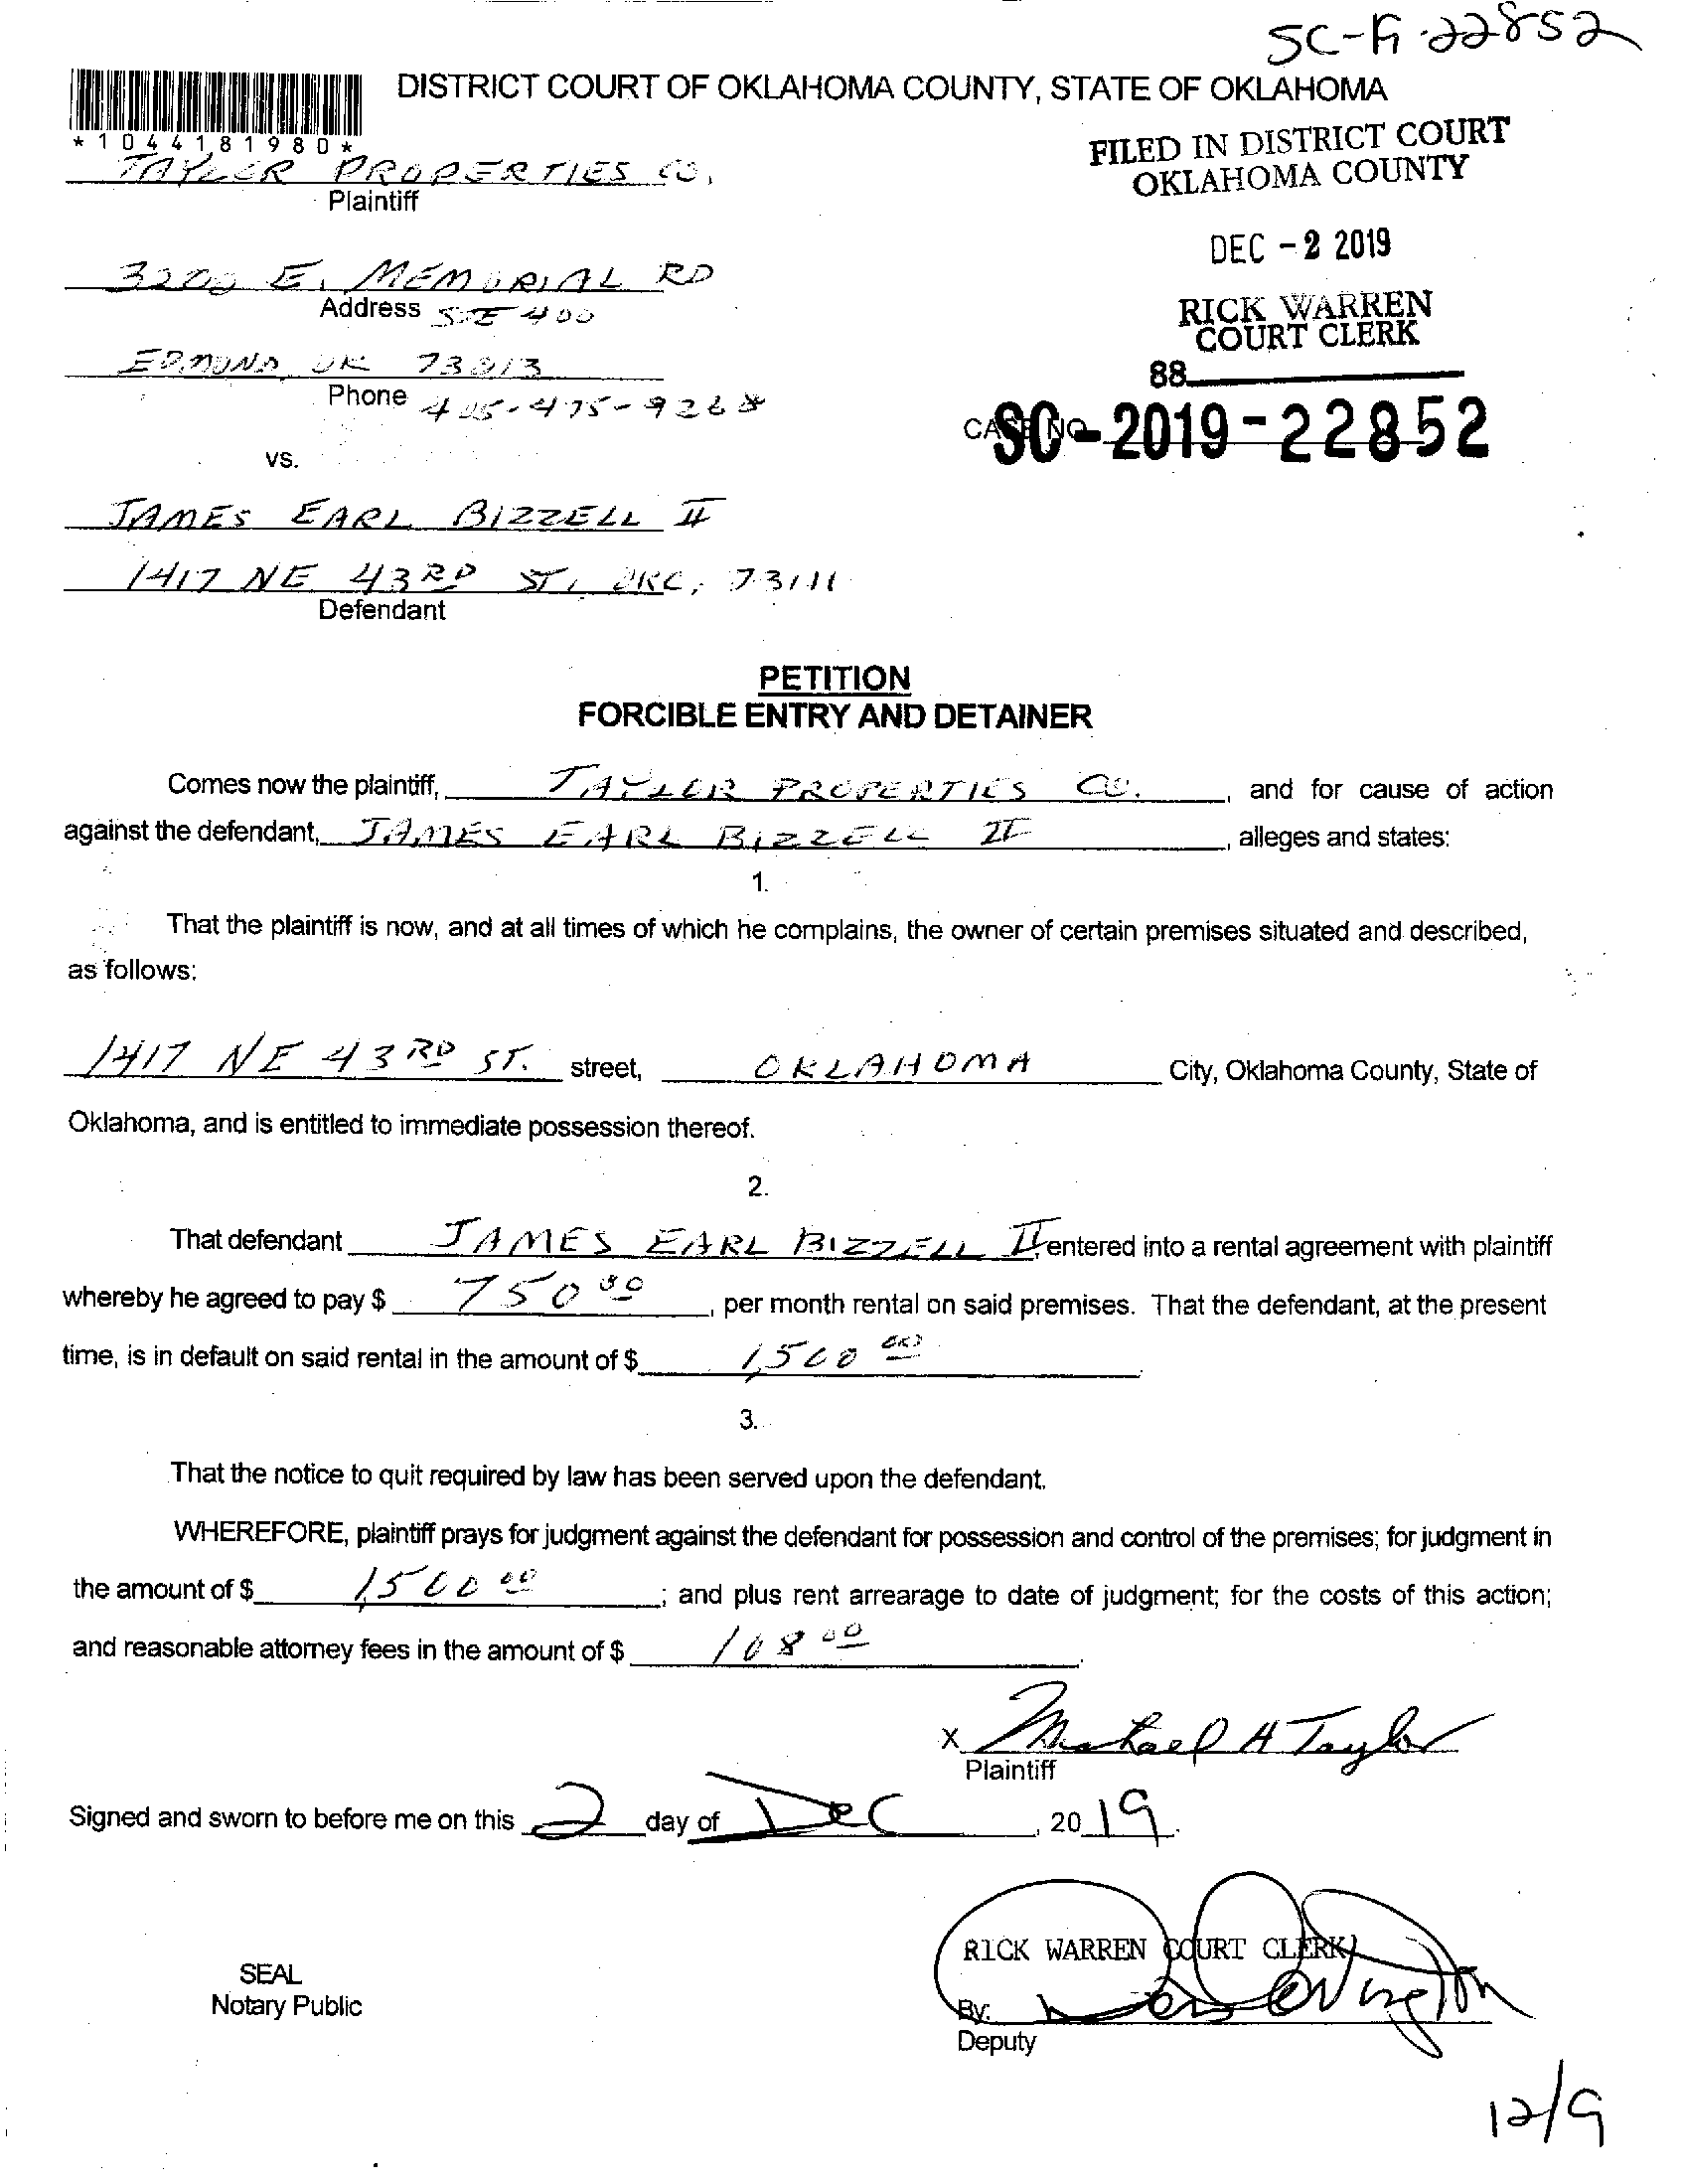 SC-19-22852
DISTRICT COURT OF OKLAHOMA COUNTY, STATE OF OKLAHOMA
*1044181980*
FILED IN DISTRICT COURT
OKLAHOMA COUNTY
TAYLOR PROPERTIES CO.
Plaintiff
DEC -2 2019
3200 E. MEMORIAL RD
Address STE 400
RICK WARREN
COURT CLERK
EDMOND OK 73013
88
Phone 405-475-9268
CASE NO. SC-2019-22852
vs.
JAMES EARL BIZZELL II
1417 NE 43RD ST, OKC, 73111
Defendant
PETITION
FORCIBLE ENTRY AND DETAINER
Comes now the plaintiff, TAYLOR PROPERTIES CO., and for cause of action
against the defendant, JAMES EARL BIZZELL II, alleges and states:
1.
That the plaintiff is now, and at all times of which he complains, the owner of certain premises situated and described,
as follows:
1417 NE 43RD ST. street, OKLAHOMA City, Oklahoma County, State of
Oklahoma, and is entitled to immediate possession thereof.
2.
That defendant JAMES EARL BIZZELL II, entered into a rental agreement with plaintiff
whereby he agreed to pay $ 750 00, per month rental on said premises. That the defendant, at the present
time, is in default on said rental in the amount of $ 1,500 00
3.
That the notice to quit required by law has been served upon the defendant.
WHEREFORE, plaintiff prays for judgment against the defendant for possession and control of the premises; for judgment in
the amount of $ 1,500 00; and plus rent arrearage to date of judgment; for the costs of this action;
and reasonable attorney fees in the amount of $ 108 00.
X Michael H Taylor
Plaintiff
Signed and sworn to before me on this 2 day of Dec, 20 19.
RICK WARREN COURT CLERK
SEAL
Notary Public
By:
Deputy
12/9